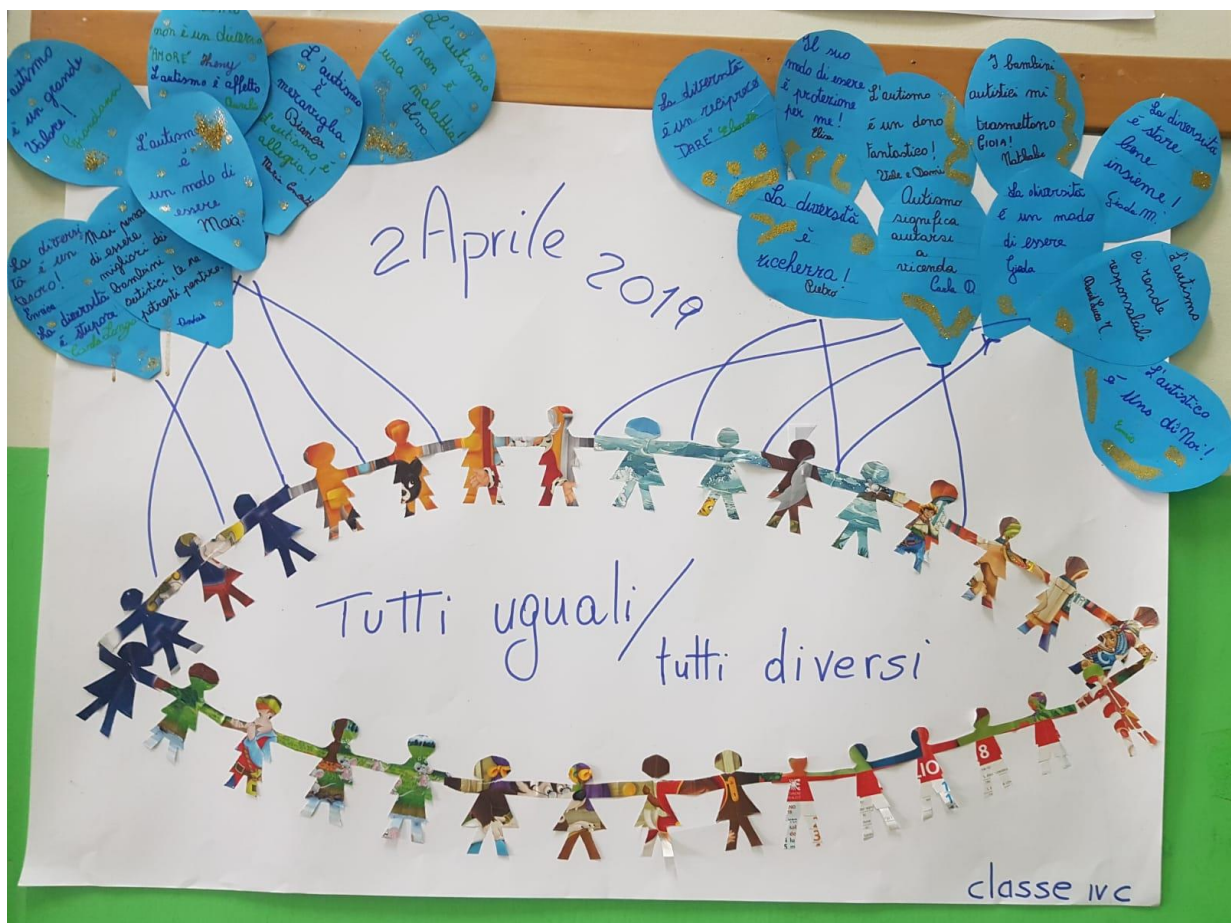 L'autismo
è un grande
Valore!
non è un
"AMORE"
L'autismo è affetto
L'autismo
è
un modo di
essere
Maia.
L'autismo
è
meraviglia
Bianca
L'autismo
è
allegria!
Maria
L'autismo
non è
una
malattia!
La diversi
tà è un
tesoro!
La diversità
è stupore
Mai pensa
di essere
migliori di
bambini
autistici, te ne
potresti pentire.
La diversità
è un reciproco
DARE"
Il suo
modo di essere
è protezione
per me!
Elisa
L'autismo
é un dono
Fantastico!
I bambini
autistici mi
trasmettono
GIOIA!
Nathalie
La diversità
è stare
bene
insieme!
Giada M.
La diversità
è
ricchezza!
Pietro
Autismo
significa
aiutarsi
a
vicenda
Carla D.
La diversità
è un modo
di essere
Giada
L'autismo
ci rende
responsabili
L'autistico
è Uno
di Noi!
2 Aprile
2019
Tutti uguali/
tutti diversi
LIO
8
classe IV C